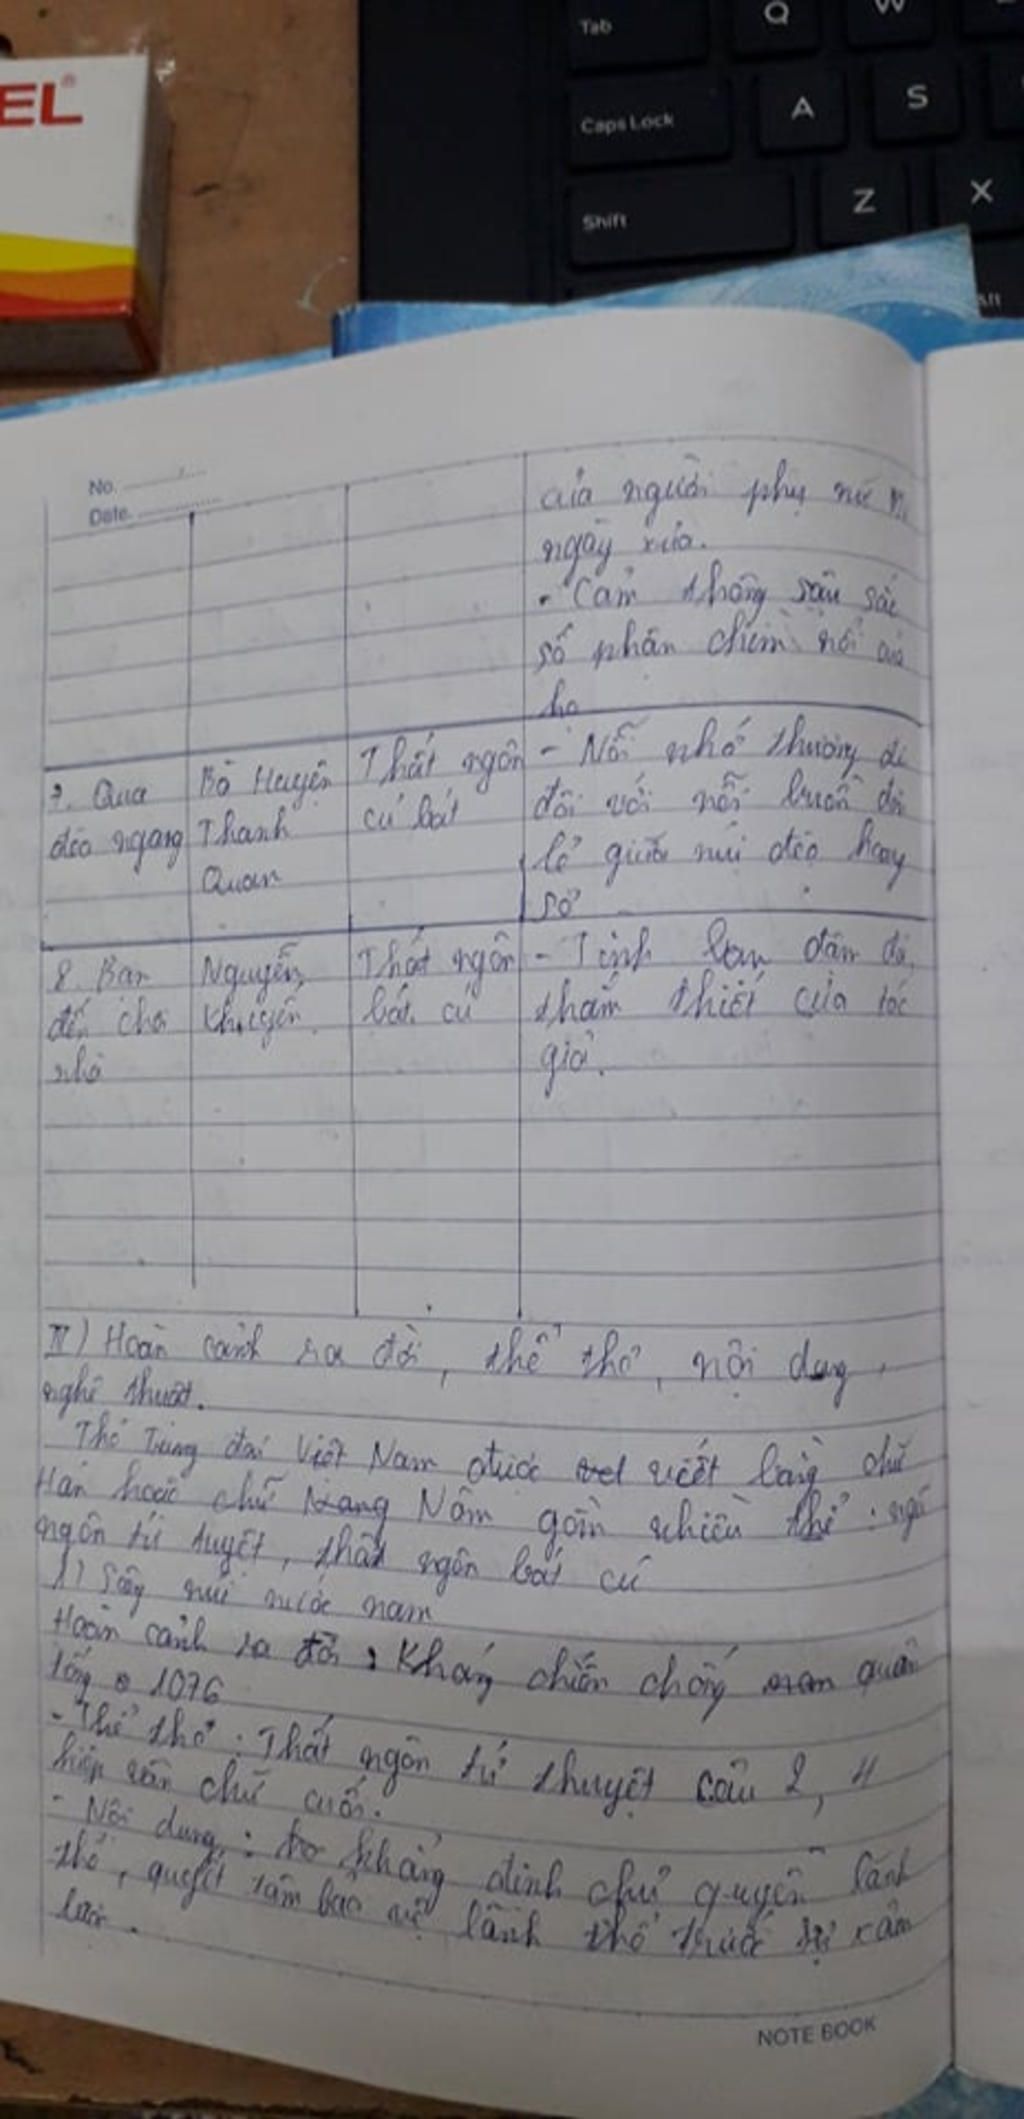 EL®
Tab Q W
Caps Lock A S
Shift Z X
Alt
No.
Date.
của người phụ nữ
ngày xưa.
- Cảm thông sâu sắc
số phận chìm nổi của
họ
7. Qua
đèo ngang
Bà Huyện
Thanh
Quan
Thất ngôn
cú bát
- Nỗi nhớ thương đi
đôi với nỗi buồn đơn
lẻ giữa núi đèo hoang
sơ
8. Bạn
đến chơi
nhà
Nguyễn
Khuyến
Thất ngôn
bát cú
- Tình bạn đậm đà,
thắm thiết của tác
giả.
IV) Hoàn cảnh ra đời, thể thơ, nội dung,
nghệ thuật.
Thơ Trung đại Việt Nam được viết bằng chữ
Hán hoặc chữ Nôm gồm nhiều thể : ngũ
ngôn tứ tuyệt, thất ngôn bát cú
1) Sông núi nước nam
Hoàn cảnh ra đời : Kháng chiến chống quân
Tống 1076
- Thể thơ : Thất ngôn tứ thuyệt câu 2, 4
hiệp vần chữ cuối.
- Nội dung : khẳng định chủ quyền lãnh
thổ, quyết tâm bảo vệ lãnh thổ trước sự xâm
lược.
NOTE BOOK